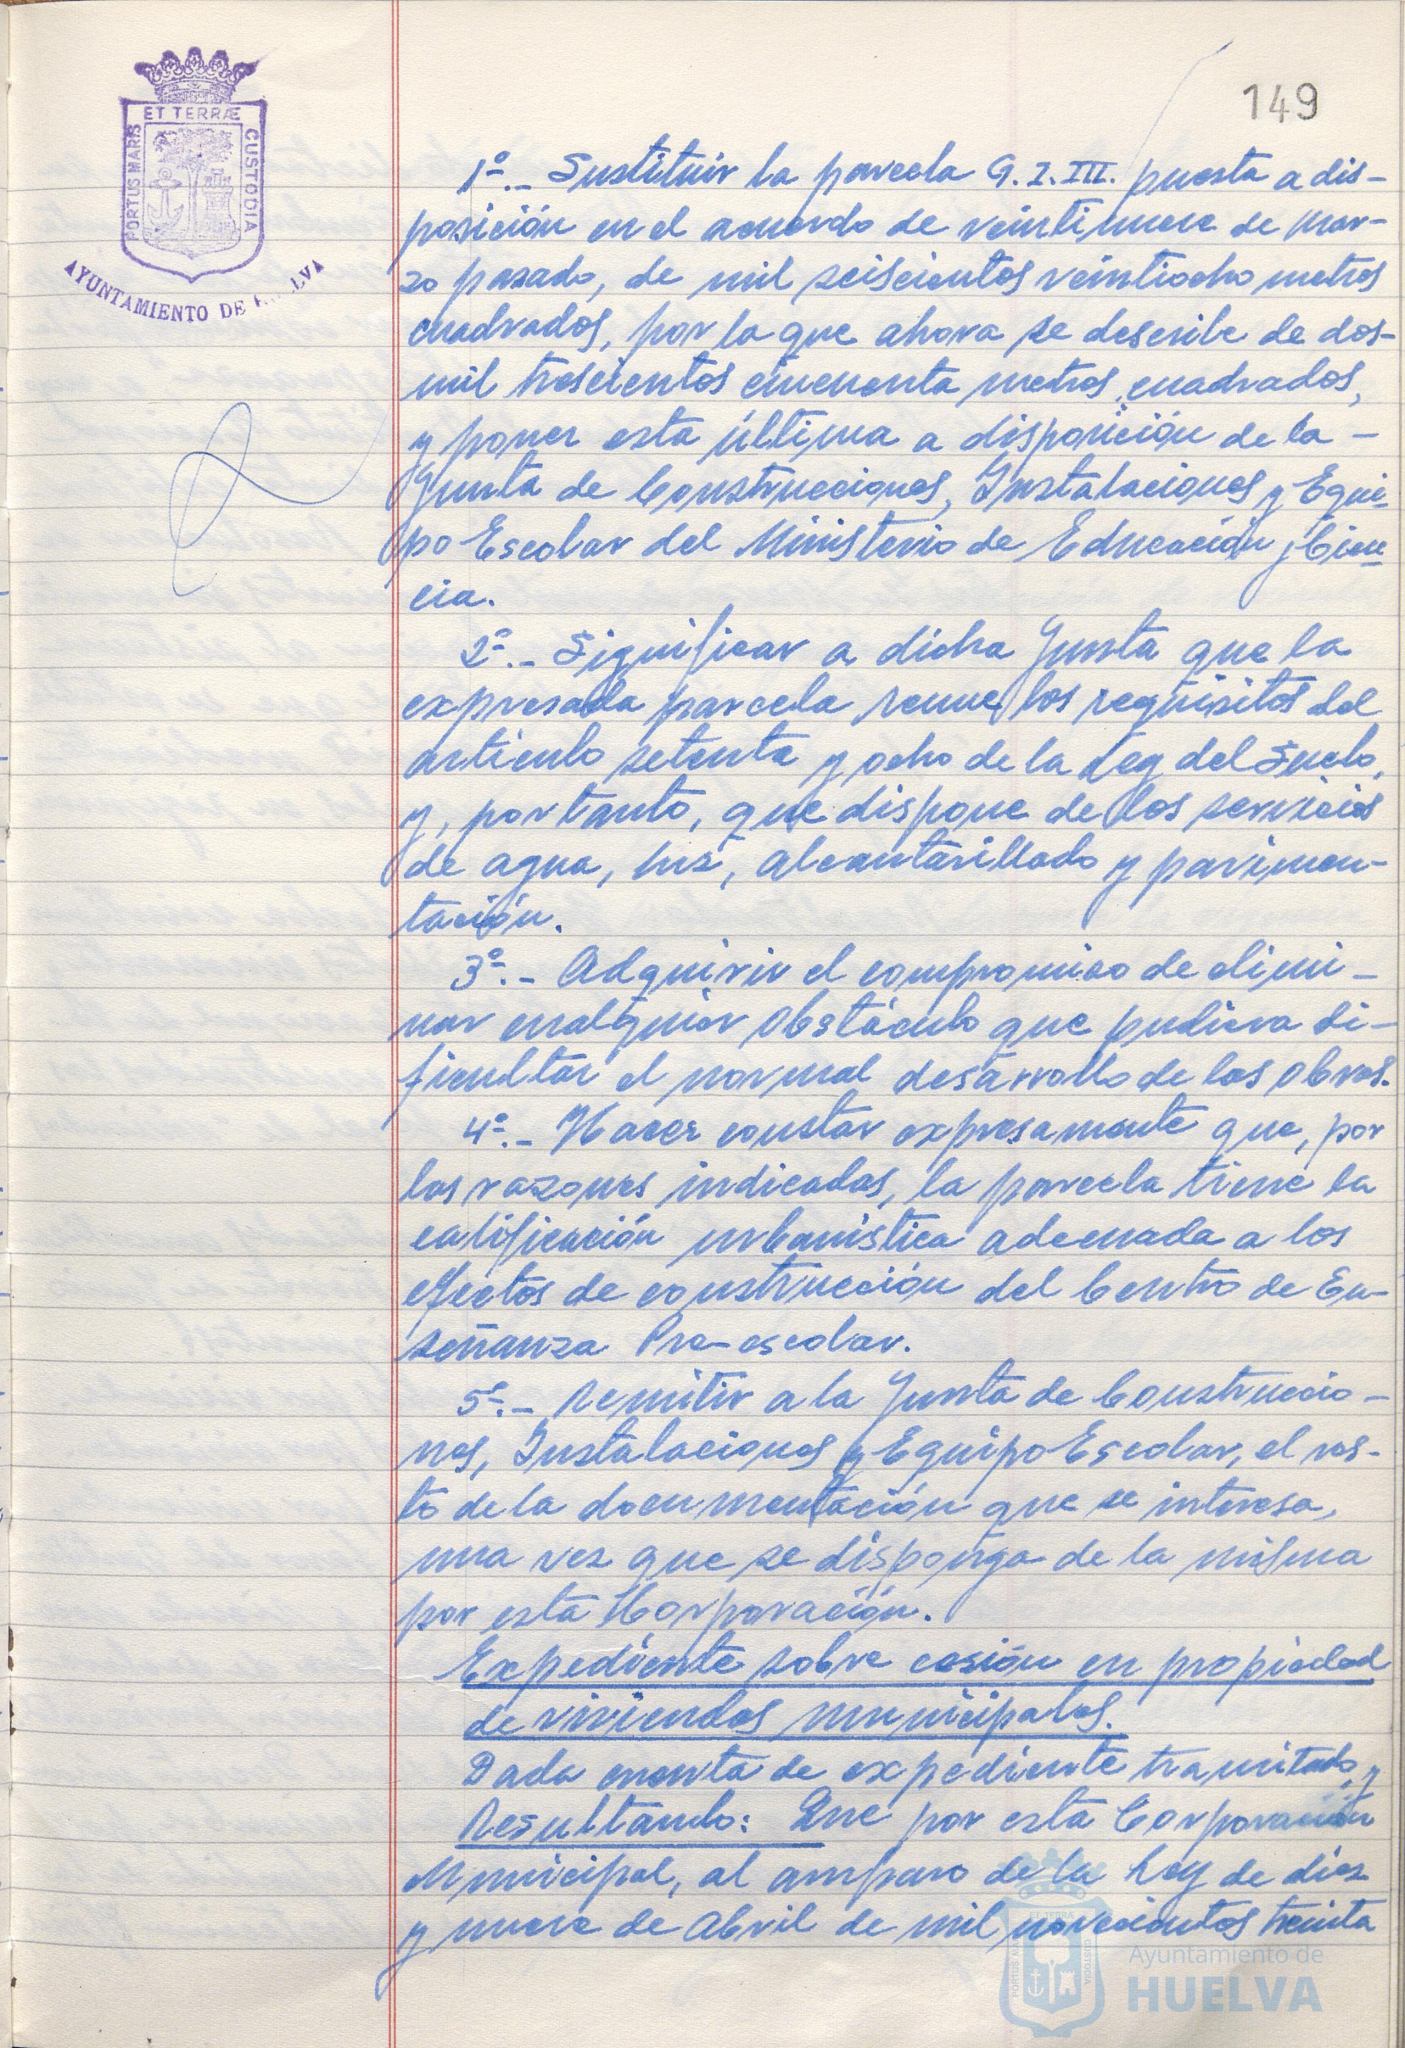 149
ET TERRÆ
PORTUS MARIS
CUSTODIA
AYUNTAMIENTO DE HUELVA
1º.- Sustituir la parcela G.I.III. puesta a dis-
posición en el acuerdo de veintinueve de mar-
zo pasado, de mil seiscientos veintiocho metros
cuadrados, por la que ahora se describe de dos-
mil trescientos cincuenta metros cuadrados,
y poner esta última a disposición de la -
Junta de Construcciones, Instalaciones y Equi-
po Escolar del Ministerio de Educación y Cien-
cia.
2º.- Significar a dicha Junta que la
expresada parcela reune los requisitos del
artículo setenta y ocho de la Ley del Suelo,
y, por tanto, que dispone de los servicios
de agua, luz, alcantarillado y pavimen-
tación.
3º.- Adquirir el compromiso de elimi-
nar cualquier obstáculo que pudiera di-
ficultar el normal desarrollo de las obras.
4º.- Hacer constar expresamente que, por
las razones indicadas, la parcela tiene la
calificación urbanística adecuada a los
efectos de construcción del Centro de En-
señanza Pre-escolar.
5º.- Remitir a la Junta de Construccio-
nes, Instalaciones y Equipo Escolar, el res-
to de la documentación que se interesa,
una vez que se disponga de la misma
por esta Corporación.
Expediente sobre cesión en propiedad
de viviendas municipales.
Dada cuenta de expediente tramitado, y
Resultando: Que por esta Corporación
Municipal, al amparo de la Ley de diez
y nueve de Abril de mil novecientos treinta
Ayuntamiento de
HUELVA